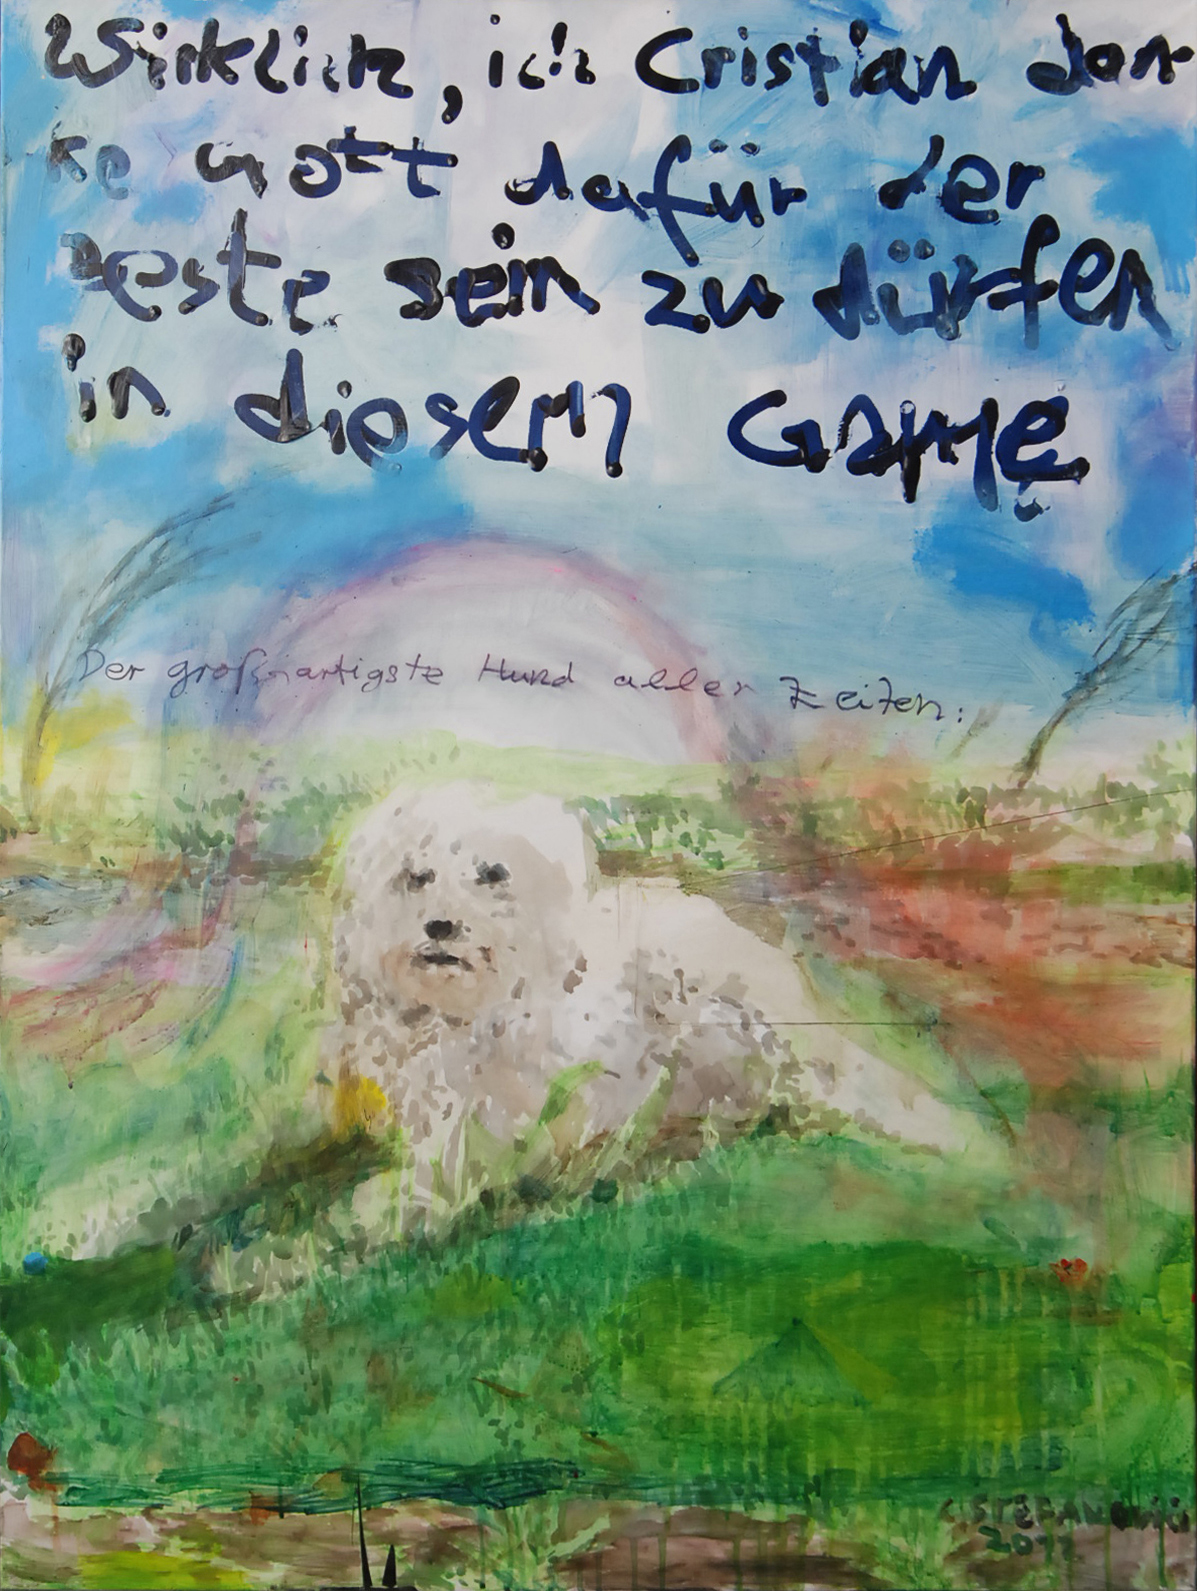 Wirklich, ich Cristian dan
ke gott dafür der
beste sein zu dürfen
in diesem Game
Der großartigste Hund aller Zeiten:
C. STEFANOVICI